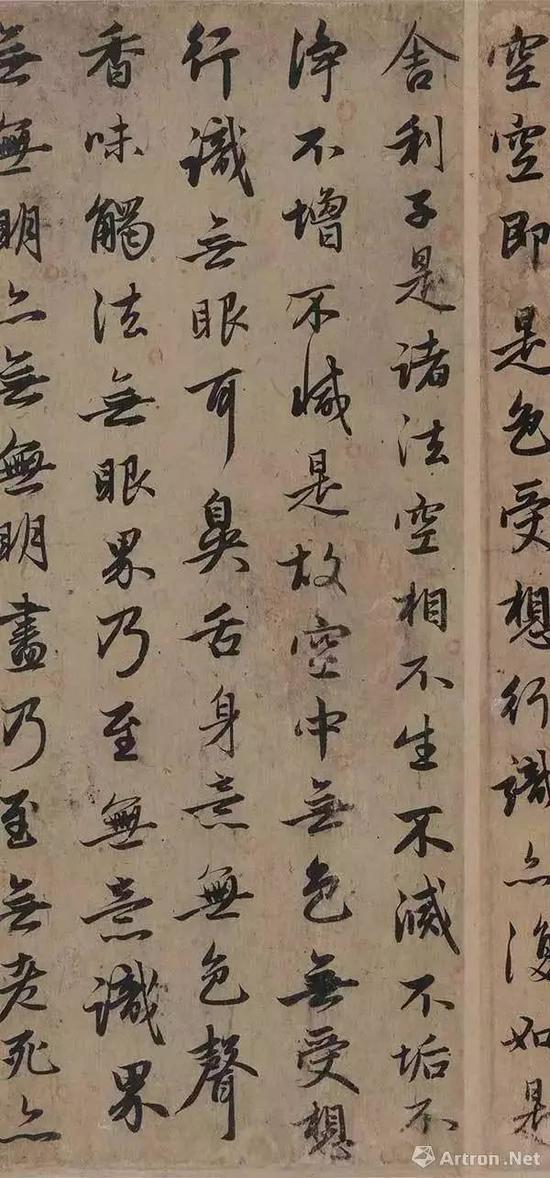 空空即是色受想行識亦復如是
舍利子是諸法空相不生不滅不垢不
淨不增不減是故空中無色無受想
行識無眼耳鼻舌身意無色聲
香味觸法無眼界乃至無意識界
無無明亦無無明盡乃至無老死亦
Artron.Net